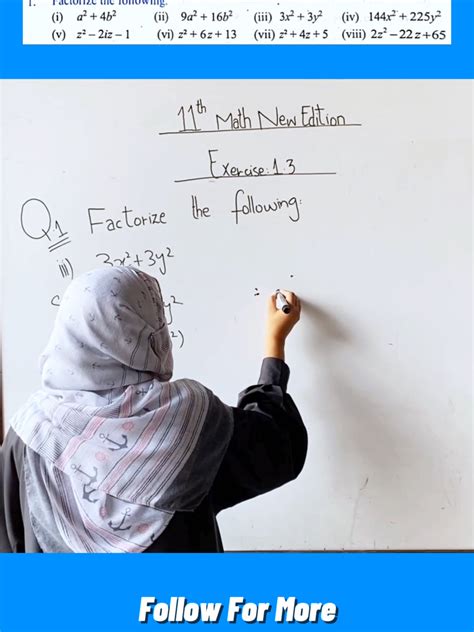 1. Factorize the following:
(i) a² + 4b² (ii) 9a² + 16b² (iii) 3x² + 3y² (iv) 144x² + 225y²
(v) z² – 2iz – 1 (vi) z² + 6z + 13 (vii) z² + 4z + 5 (viii) 2z² – 22z + 65
11th Math New Edition
Exercise: 1.3
Q.1 Factorize the following:
iii) 3x²+3y²
y²
²)
∴
Follow For More